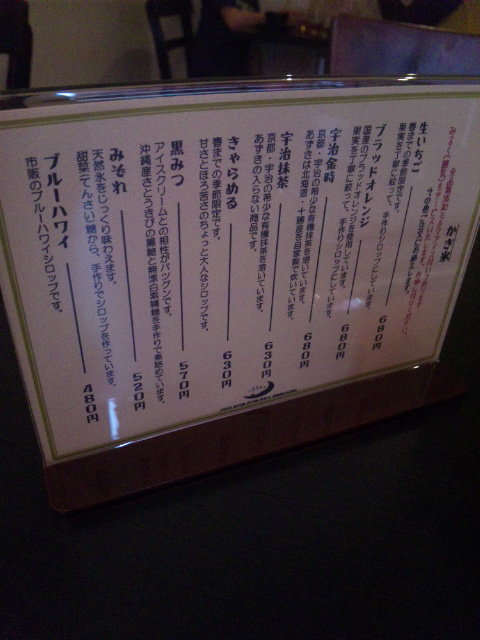 かき氷
生いちご 680円
春までの季節限定です。
果実を丁寧に絞って、手作りシロップにしています。
ブラッドオレンジ 680円
国産のブラッドオレンジを使用しています。
果実を丁寧に絞って、手作りシロップにしています。
宇治金時 680円
京都・宇治の希少な有機抹茶を溶いています。
あずきは北海道・十勝産を自家製で炊いています。
宇治抹茶 630円
京都・宇治の希少な有機抹茶を溶いています。
あずきの入らない商品です。
きゃらめる 630円
春までの季節限定です。
甘さとほろ苦さのちょっと大人なシロップです。
黒みつ 570円
アイスクリームとの相性がバツグンです。
沖縄産さとうきびの黒糖と無漂白素精糖を手作りで煮詰めています。
みぞれ 520円
天然氷をじっくり味わえます。
甜菜(てんさい)糖から、手作りでシロップを作っています。
ブルーハワイ 480円
市販のブルーハワイシロップです。